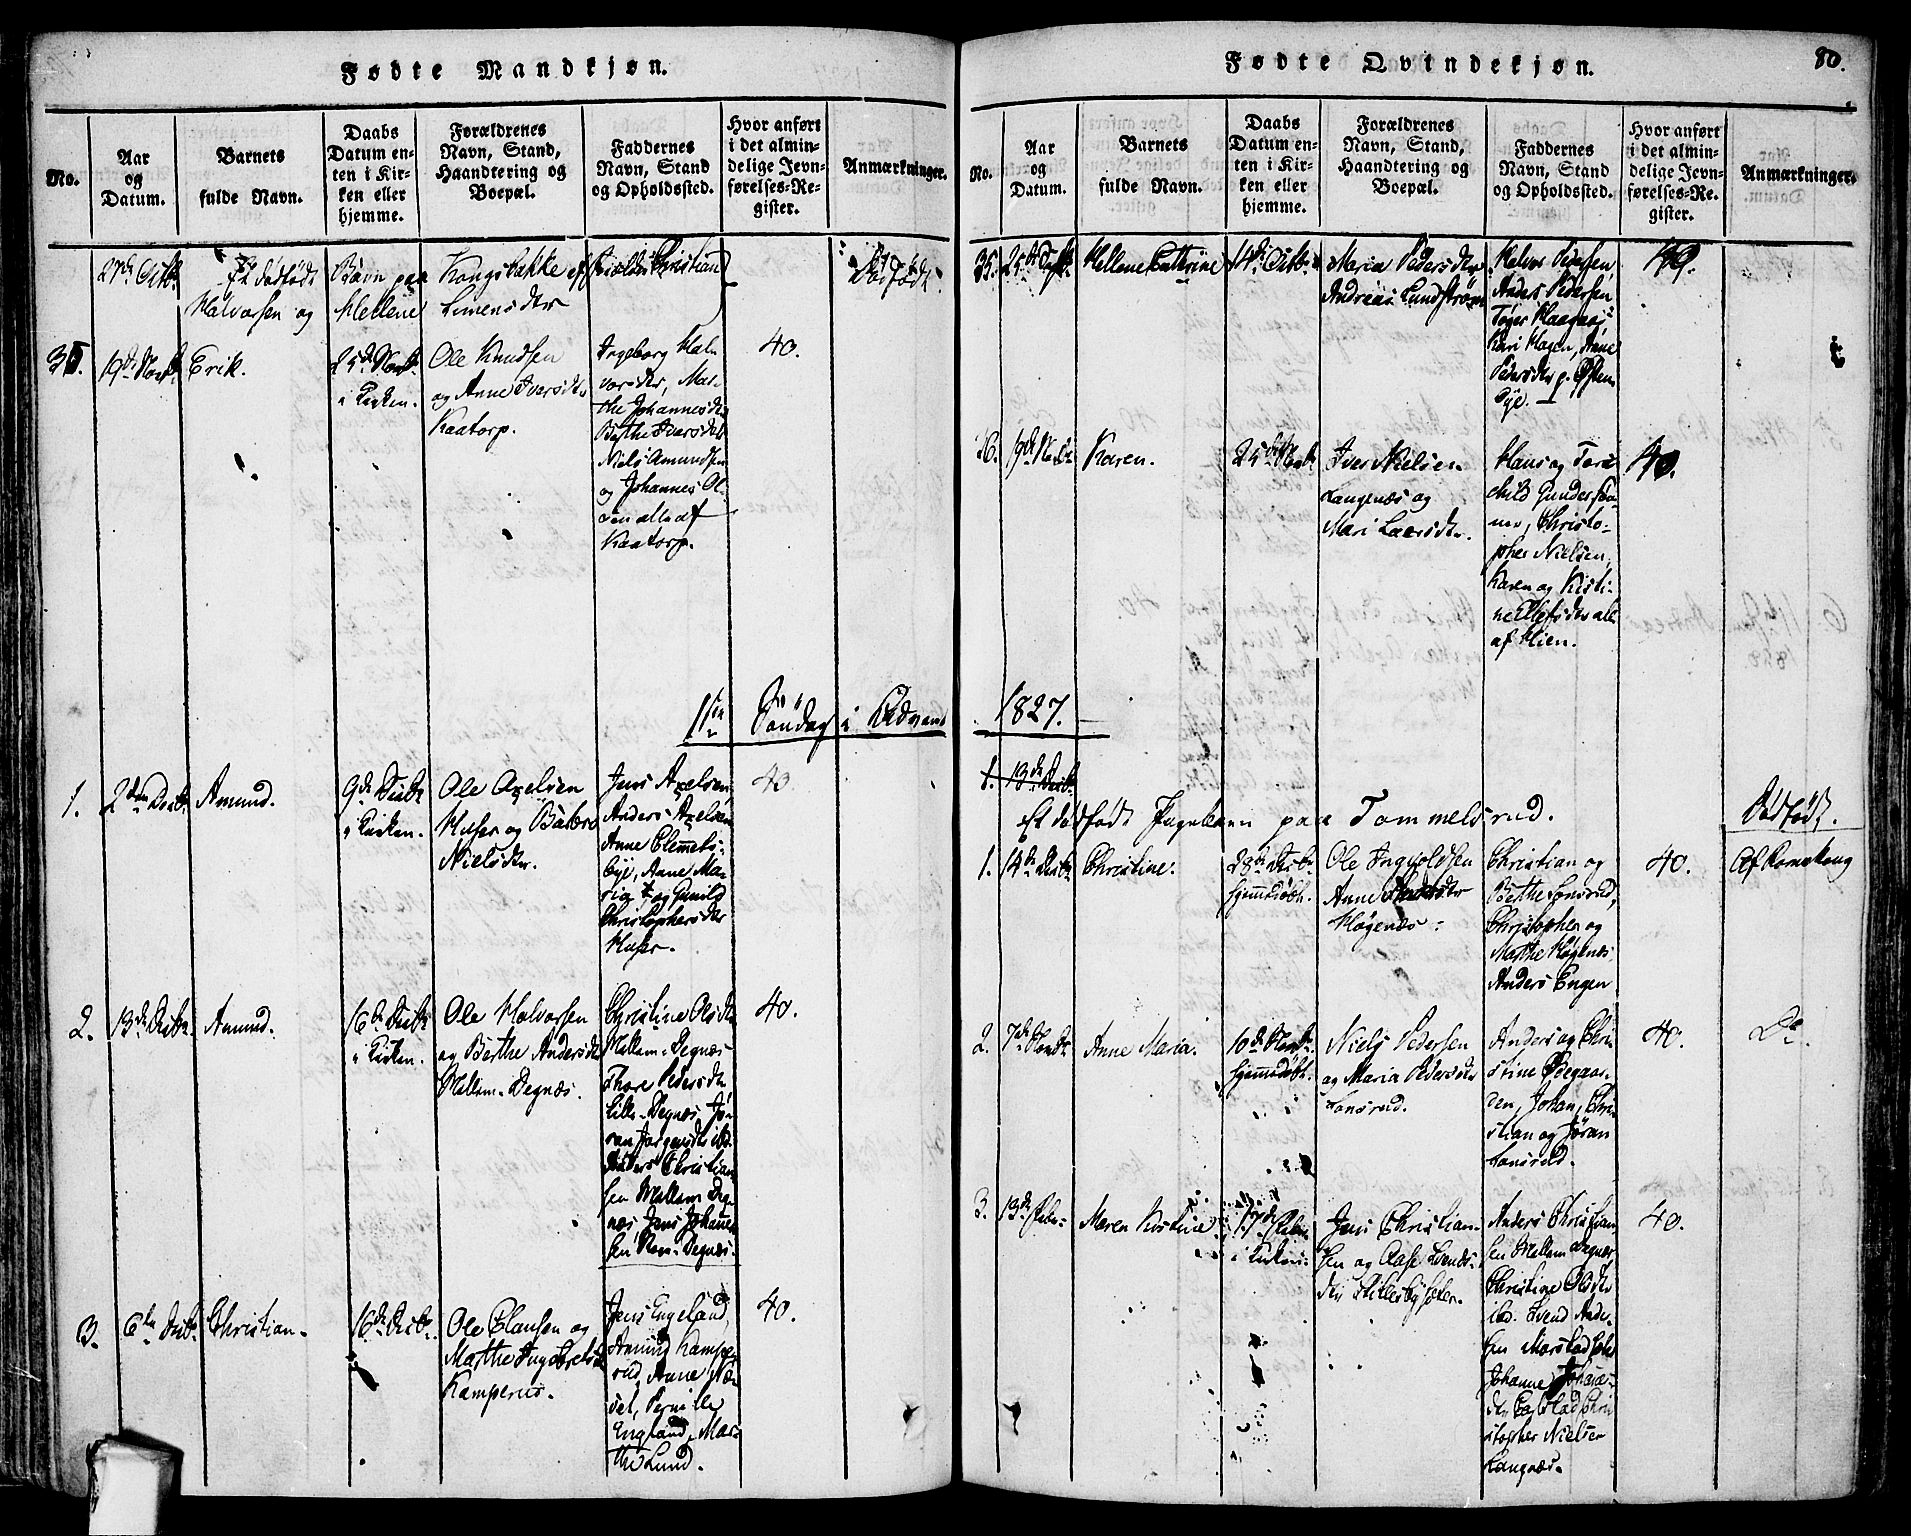 Fødte Mandkjøn.
No.
Aar
og
Datum.
Barnets
fulde Navn.
Daabs
Datum en-
ten i Kir-
ken eller
hjemme.
Forældrenes
Navn, Stand,
Haandtering og
Boepæl.
Faddernes
Navn, Stand
og Opholdssted.
Hvor anført
i det almin-
delige Jevn-
førelses-Re-
gister.
Anmærkninger.
27de Octb.
Et dødfødt
Halvorsen og
Barn paa
Hellene
Kongsbakke af
Simensdtr
Dødfødt.
35.
19de Novb.
Erik.
25de Novb.
i Kirken.
Ole Knudsen
og Anne Iversdtr
Kaatorp.
Ingeborg Hal-
vorsdtr, Mar-
the Johannesdtr
Berthe Iversdtr
Niels Amundsen
og Johannes Ol-
sen alle af
Kaatorp.
40.
1ste Søndag i Advent
1.
2den Decbr
Amund.
9de Decbr
i Kirken.
Ole Axelsen
Huser og Barbro
Nielsdtr.
Jens Axelsen,
Anders Axelsen
Anne Clemets-
bye, Anne Ma-
ria og Gunild
Christophersdtr
Huser.
40
2.
13de Decbr
Amund.
16de Decbr
i Kirken.
Ole Halvorsen
og Berthe Andersdtr
Mellem-Degnæs.
Christine Olsdtr
Mellem-Degnæs
Thore Pedersdtr
Lille-Degnæs Jø-
ran Jørgensdtr ibd.
Anders Christian-
sen Mellem Deg-
næs, Jens Johanne-
sen Nor-Degnæs.
40.
3.
6te Decbr
Christian.
16de Decbr
Ole Clausen og
Marthe Ingebretsdtr
Kamperud.
Jens Engeland,
Amund Kampe-
rud, Anne Næ-
set, Pernille
England, Mar-
the Lund.
40.
Fødte Qvindekjøn.
80.
No.
Aar
og
Datum.
Barnets
fulde Navn.
Daabs
Datum en-
ten i Kir-
ken eller
hjemme.
Forældrenes
Navn, Stand,
Haandtering og
Boepæl.
Faddernes
Navn, Stand
og Opholdssted.
Hvor anført
i det almin-
delige Jevn-
førelses-Re-
gister.
Anmærkninger.
35.
Hellene Cathrine
14de Octb.
Maria Pedersdtr
Andreas Lundstrøm
Anders Pedersen
Kari Hagen, Anne
Pedersdtr p. Østen-
bye.
40.
36.
9de Novbr
Karen.
25de Novbr
Iver Nielsen
Langenæs og
Mari Laersdtr.
Hans og Tore
Christo-
pher Nielsen,
Karen og Kisti-
ne alle
af Hien.
40.
1827.
1. 13de Decbr
Et dødfødt Pigebarn paa Tommelsrud.
Dødfødt.
1.
14de Decbr
Christine.
28de Decbr
hjemdøbt.
Ole Ingvoldsen
Anne
Høgenæs.
Christian og
Berthe Lonsrud,
Christopher og
Marthe Høgenæs,
Anders Engen
40.
Af Romskoug
2.
Anne Maria.
hjemdøbt.
Niels Pedersen
og Maria Pedersdtr
Lonsrud.
Anders og Chri-
stine Ødegaar-
den, Johan, Chri-
stian og Jøran
Lonsrud.
40.
Do.
3.
13de Febr.
Maren Kirstine
17de Febr.
i Kirken.
Jens Christian-
sen og Aase Svends-
dtr Stillesbysæter.
Anders Christian-
sen Mellem Degnæs
Christine Olsdtr
ibd. Svend Ander-
sen
Johanne
Chri-
stopher Nielsen
Langnæs.
40.